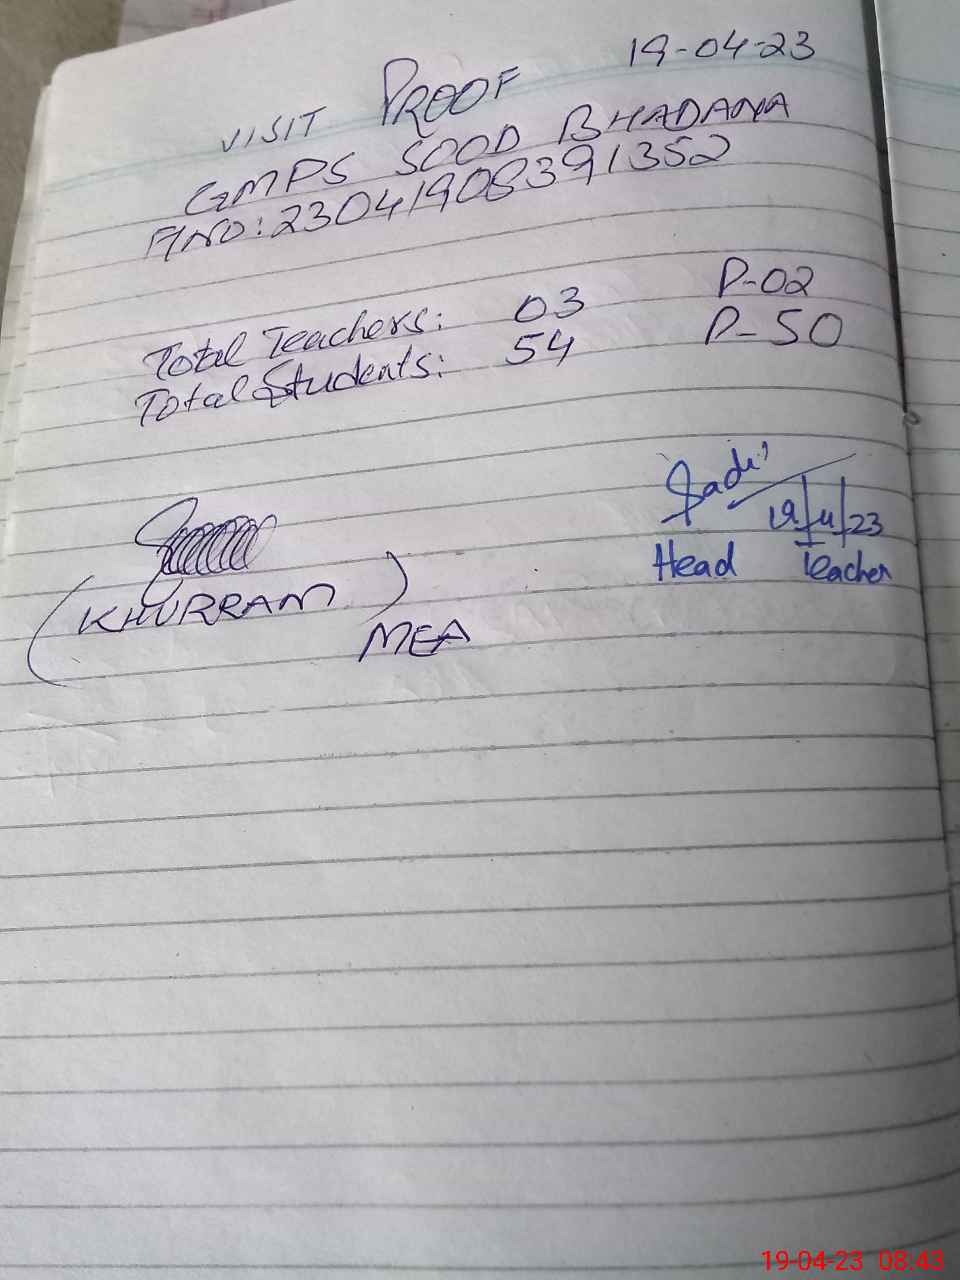 19-04-23
VISIT PROOF
GMPS SOOD BHADANA
A/NO: 23041908391352
Total Teachers: 03 P-02
Total Students: 54 P-50
19/4/23
Head Teacher
(KHURRAM)
MEA
19-04-23 08:43